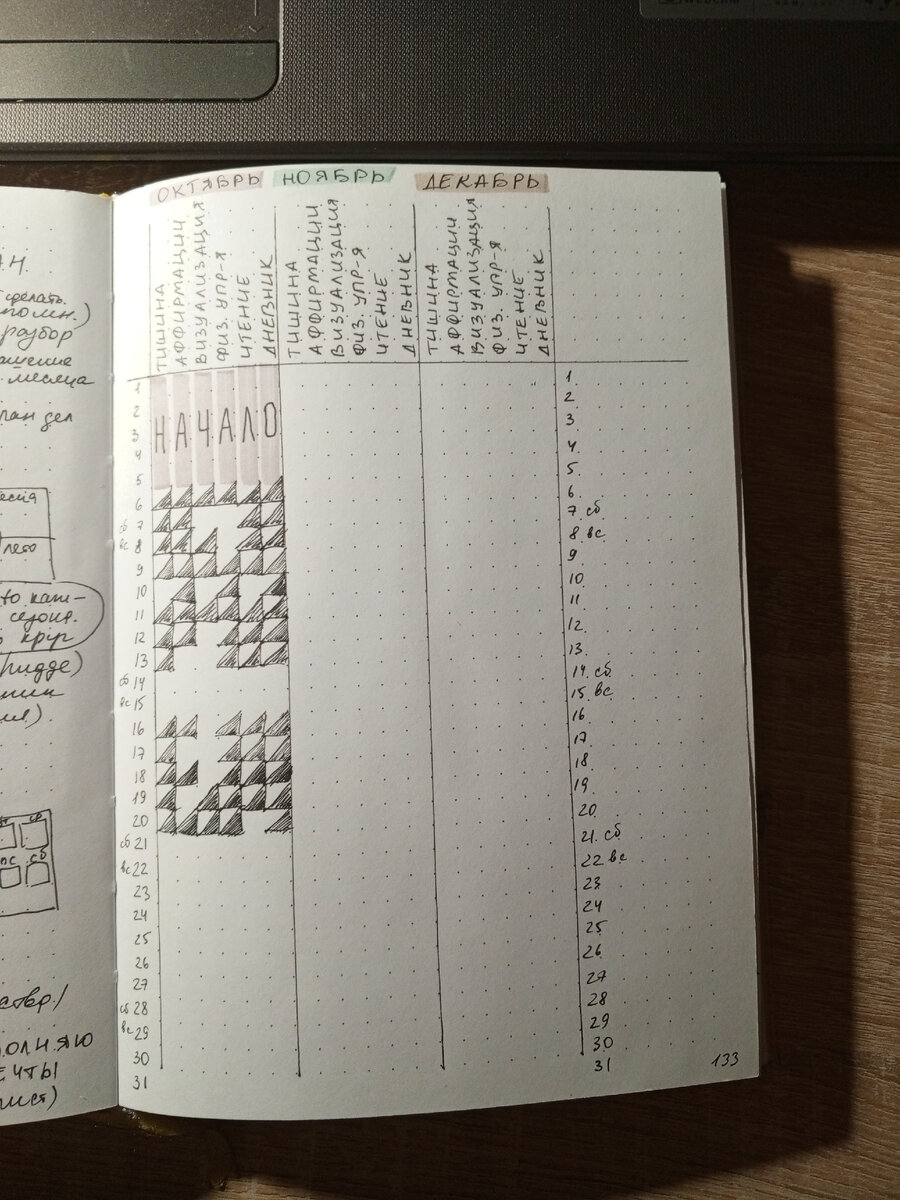 ОКТЯБРЬ НОЯБРЬ ДЕКАБРЬ
ТИШИНА
АФФИРМАЦИИ
ВИЗУАЛИЗАЦИЯ
ФИЗ. УПР-Я
ЧТЕНИЕ
ДНЕВНИК
ТИШИНА
АФФИРМАЦИИ
ВИЗУАЛИЗАЦИЯ
ФИЗ. УПР-Я
ЧТЕНИЕ
ДНЕВНИК
ТИШИНА
АФФИРМАЦИИ
ВИЗУАЛИЗАЦИЯ
ФИЗ. УПР-Я
ЧТЕНИЕ
ДНЕВНИК
НАЧАЛО
1
2
3
4
5
6
сб 7
вс 8
9
10
11
12
13
сб 14
вс 15
16
17
18
19
20
сб 21
вс 22
23
24
25
26
27
сб 28
вс 29
30
31
1
2
3
4
5
6
7 сб
8 вс
9
10
11
12
13
14 сб
15 вс
16
17
18
19
20
21 сб
22 вс
23
24
25
26
27
28
29
30
31
133
сделать.
разбор
месяца
дел
лето
круг
сб